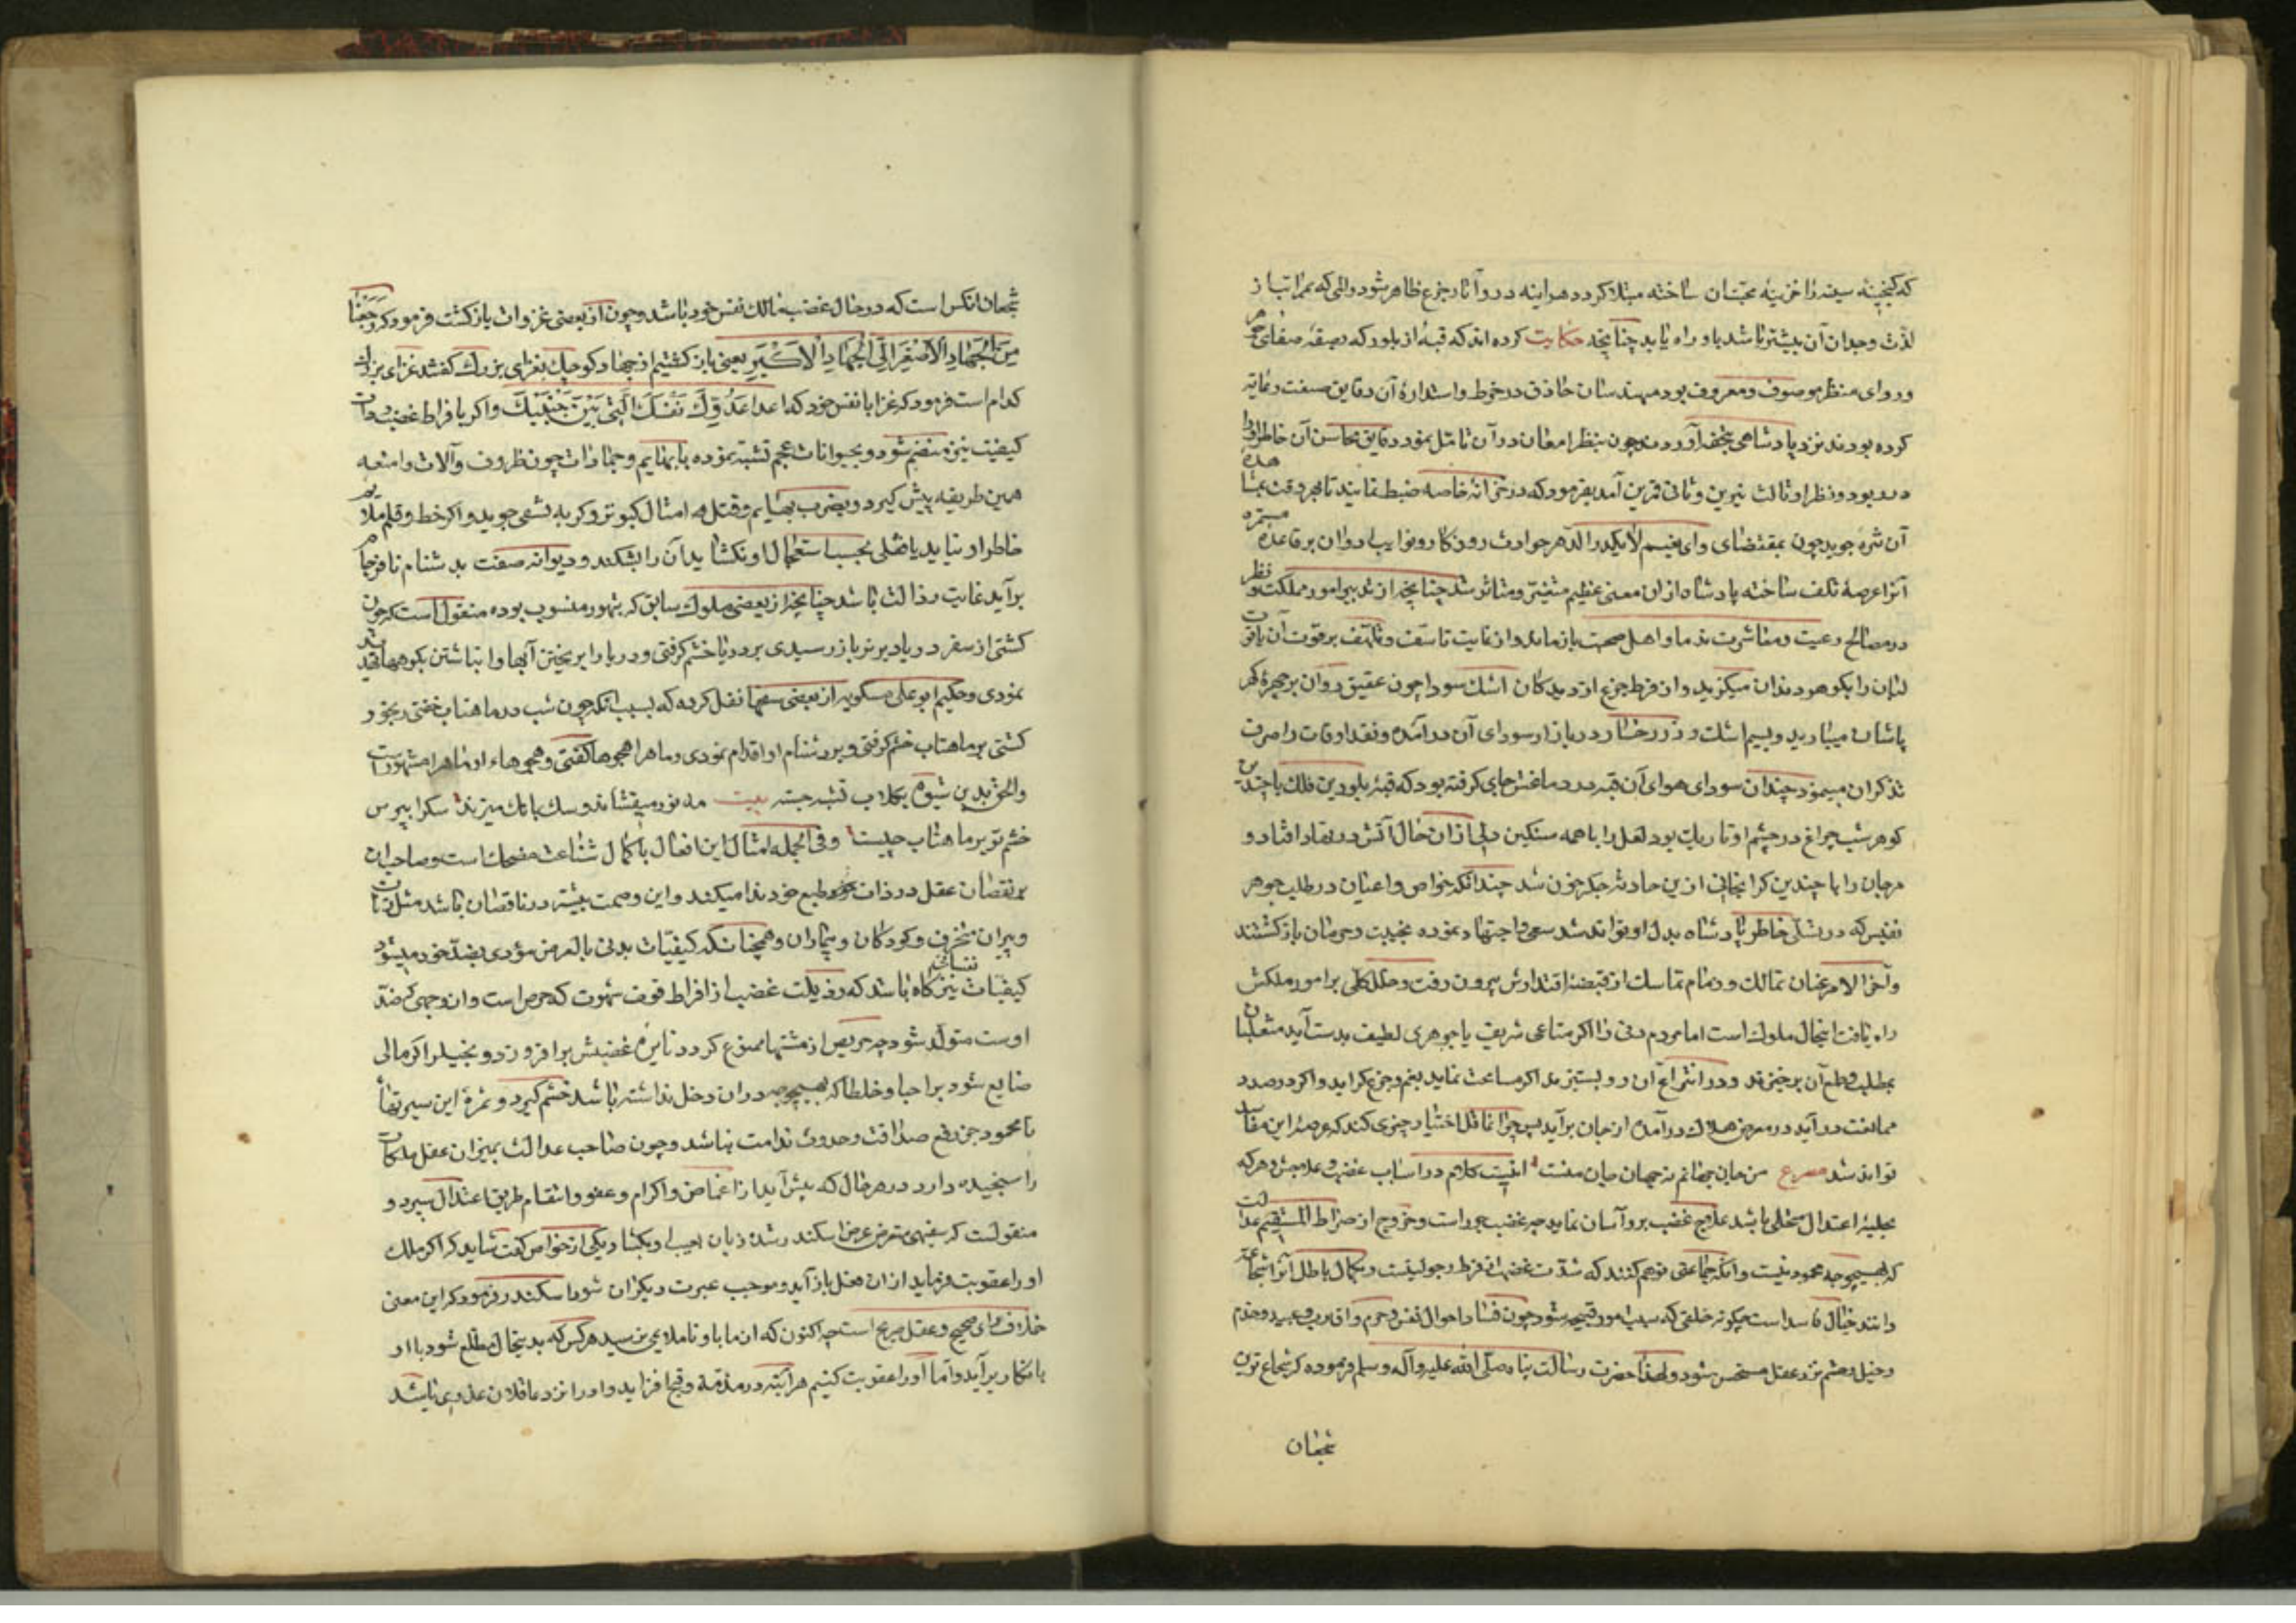 که گنجینهٔ سینه را خزینهٔ محبت آن ساخته مبتلا گردد هر آینه درو آثار جزع ظاهر شود و المی که بمراتب از
لذت وجدان آن بیشتر باشد باو راه یابد چنانچه حکایت کرده اند که قبهٔ از بلور که بصفت صفای
و روای منظر موصوف و معروف بود مهندسان حاذق در خرط و استدارهٔ آن دقایق صنعت رعایت
کرده بودند نزد پادشاهی بتحفه آوردند چون بنظر امعان در آن تامل نمود دقایق محاسن آن خاطر او را
در ربود و در نظر او ثالث نیرین و ثانی قمرین آمد بفرمود که در خزانهٔ خاصه ضبط نمایند تا هر وقت بمشاهدهٔ
آن شره جوید چون بمقتضای و ای نعیم لا یکدره الدهر حوادث روزگار و نوایب ادوار بر قاعدهٔ مستمره
آنرا عرصهٔ تلف ساخته پادشاه ازان معنی عظیم متغیر و متاثر شد چنانچه از تدبیر امور مملکت و نظر
در مصالح رعیت و معاشرت ندما و اهل صحبت بازماند و از غایت تاسف و تلهف بر فوت آن یاقوت
لبان را بگوهر دندان میگزید و از فرط جزع از دیدگان اشک سودا چون عقیق روان بر چهرهٔ
پاشان میبارید و بسیم اشک و زر رخسار در بازار سودای آن در آمده و نقد اوقات را صرف
تذکر آن مینمود چندان سودای هوای آن قبه در دماغش جای گرفته بود که قبهٔ بلورین فلک با چندین
گوهر شب چراغ در چشم او تاریک بود لعل را با همه سنگین دلی از ان حال آتش در نهاد افتاد و
مرجان را با چندین گرانجانی ازین حادثه جگر خون شد چندانکه خواص و اعیان در طلب جوهر
نفیس که در تسلی خاطر پادشاه بدل او تواند شد سعی و اجتهاد نموده بخیبت و حرمان باز گشتند
و آخر الامر عنان تمالک و زمام تماسک از قبضهٔ اقتدارش بیرون رفت و خلل کلی بر امور ملکش
راه یافت اینحال ملوک است اما مردم دنی را اگر متاعی شریف یا جوهری لطیف بدست آید متغلبان
بطلب و طمع آن برخیزند و در انتزاع آن رو بستیزند اگر مسامحت نماید بغم و جزع گراید و اگر در صدد
ممانعت در آید در معرض هلاک در آمده از جان برآید پس چرا عاقل اختیار چیزی کند که عرصهٔ این مقالت
تواند شد مصرع من جان جهانم نه جهان جان منت اینست کلام در اسباب غضب و علاجش و هر که
بحلیهٔ اعتدال متحلی باشد علاج غضب برو آسان نماید چه غضب جور است و خروج از صراط المستقیم عدالت
که بهیچوجه محمود نیست و آنکه جماعتی توهم کنند که شدت غضب از فرط رجولیتست و بگمان باطل آنرا شجاعت
دانند خیال فاسد است چگونه خلقی که سبب امور قبیحه شود چون فساد احوال نفس و حرم و اقارب و عبید و خدم
و خیل و حشم نزد عقل مستحسن شود و لهذا حضرت رسالت پناه صلی الله علیه و آله و سلم فرموده که شجاع ترین
شجعان
شجعان انکس است که در حال غضب مالک نفس خود باشد و چون از بعضی غزوات باز گشت فرمود که رجعنا
من الجهاد الاصغر الی الجهاد الاکبر یعنی باز گشتیم از جهاد کوچک بغزای بزرک گفتند غزای بزرک
کدام است فرمود که غزا با نفس خود که اعدا عدوک نفسک التی بین جنبیک و اگر با فراط غضب ردات
کیفیت نیز منضم شود و بحیوانات عجم تشبه نموده با بهایم و جمادات چون ظروف و آلات و امتعه
همین طریقه پیش گیرد و بضرب بهایم و قتل امثال کبوتر و گربه تشفی جوید و اگر خط و قلم ملایم
خاطر او نیاید یا قفلی بحسب استعجال او نگشاید آن را بشکند و دیوانه صفت بدشنام نافرجام
برآید غایت رذالت باشد چنانچه از بعضی ملوک سابق که بتهور منسوب بوده منقول است که چون
کشتی از سفر دریا دیرتر باز رسیدی بر دریا خشم گرفتی و دریا را بریختن آبها و انباشتن بکوهها تهدید
نمودی و حکیم ابو علی مسکویه از بعضی سفها نقل کرده که بسبب آنکه چون شب در ماهتاب خفتی رنجور
گشتی بر ماهتاب خشم گرفتی و بر دشنام او اقدام نمودی و ماه را هجوها گفتی و هجوهاء او ماه را مشهورست
والحق بدین شیوه بکلاب تشبه جسته بیت مه نور میفشاند و سک بانک میزند سک را بپرس
خشم تو بر ماهتاب چیست و فی الجمله امثال این افعال با کمال شناعت مضحک است و صاحبان
بر نقصان عقل در ذات خود و طبع خود ندا میکنند و این وصمت بیشتر در ناقصان باشد مثل زنان
و پیران مخرف و کودکان و بیماران و همچنانکه کیفیات بدنی بالعرض مؤدی بضد خود میشود
کیفیات نفسانی نیز گاه باشد که رذیلت غضب از افراط قوت شهوت که حرص است و ان وجهی ضد
اوست متولد شود چه حریص از مشتها ممنوع گردد نایرهٔ غضبش برافروزد و بخیل را اگر مالی
ضایع شود بر احبا و خلطا که بهیچوجه در ان دخل نداشته باشد خشم گیرد و ثمرهٔ این سیرتها
نامحمود جز رفع صداقت و حدوث ندامت نباشد و چون صاحب عدالت بمیزان عقل ملکات
را سنجیده دارد در هر حال که پیش آید از اغماض و اکرام و عفو و انتقام طریق اعتدال سپرد و
منقولست که سفیهی متعرض عرض اسکندر شد زبان بعیب او بگشاد یکی از خواص گفت شاید که اگر ملک
او را عقوبت فرماید ازان فعل باز آید و موجب عبرت دیگران شود اسکندر فرمود که این معنی
خلاف رای صحیح و عقل صریح است چه اکنون که از ما باو ناملایمی نرسید هر کس که بدینحال مطلع شود با او
بانکار برآید و اما او را عقوبت کنیم هر آینه در مذمة و قبح افزاید و او را نزد عاقلان عذری باشد